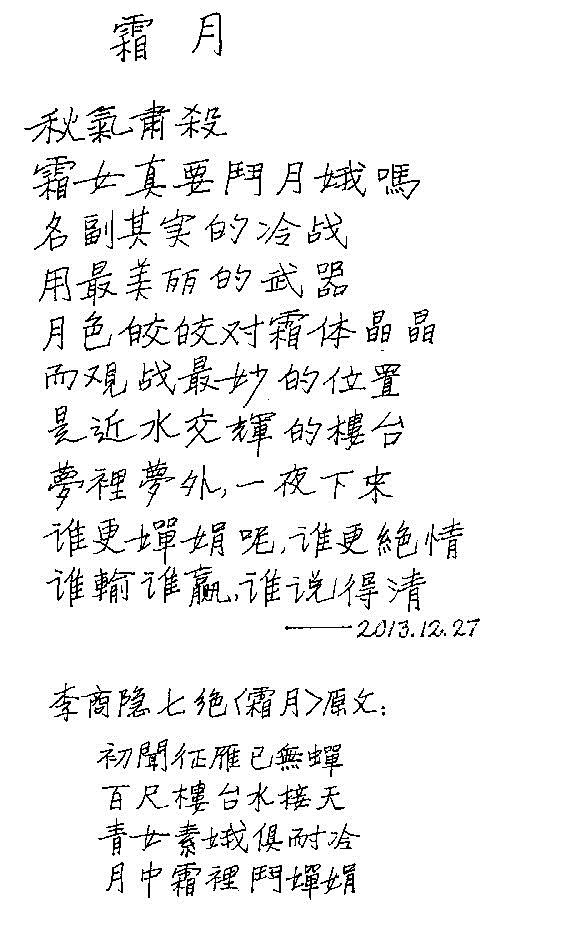 霜 月
秋氣肅殺
霜女真要鬥月娥嗎
名副其实的冷战
用最美丽的武器
月色皎皎对霜体晶晶
而观战最妙的位置
是近水交輝的樓台
夢裡夢外,一夜下來
谁更嬋娟呢,谁更絕情
谁輸谁赢,谁说得清
——2013.12.27
李商隐七絕〈霜月〉原文:
初聞征雁已無蟬
百尺樓台水接天
青女素娥俱耐冷
月中霜裡鬥嬋娟